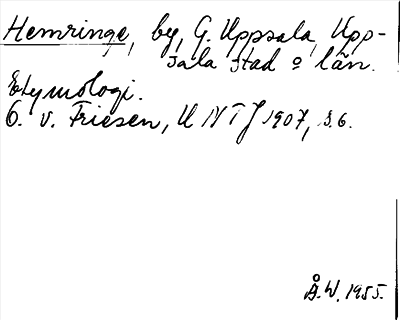 Hemringe, by, G. Uppsala, Upp-
sala stad o län.
Etymologi.
O. v. Friesen, UNTJ 1907, s. 6.
Å. W. 1955.